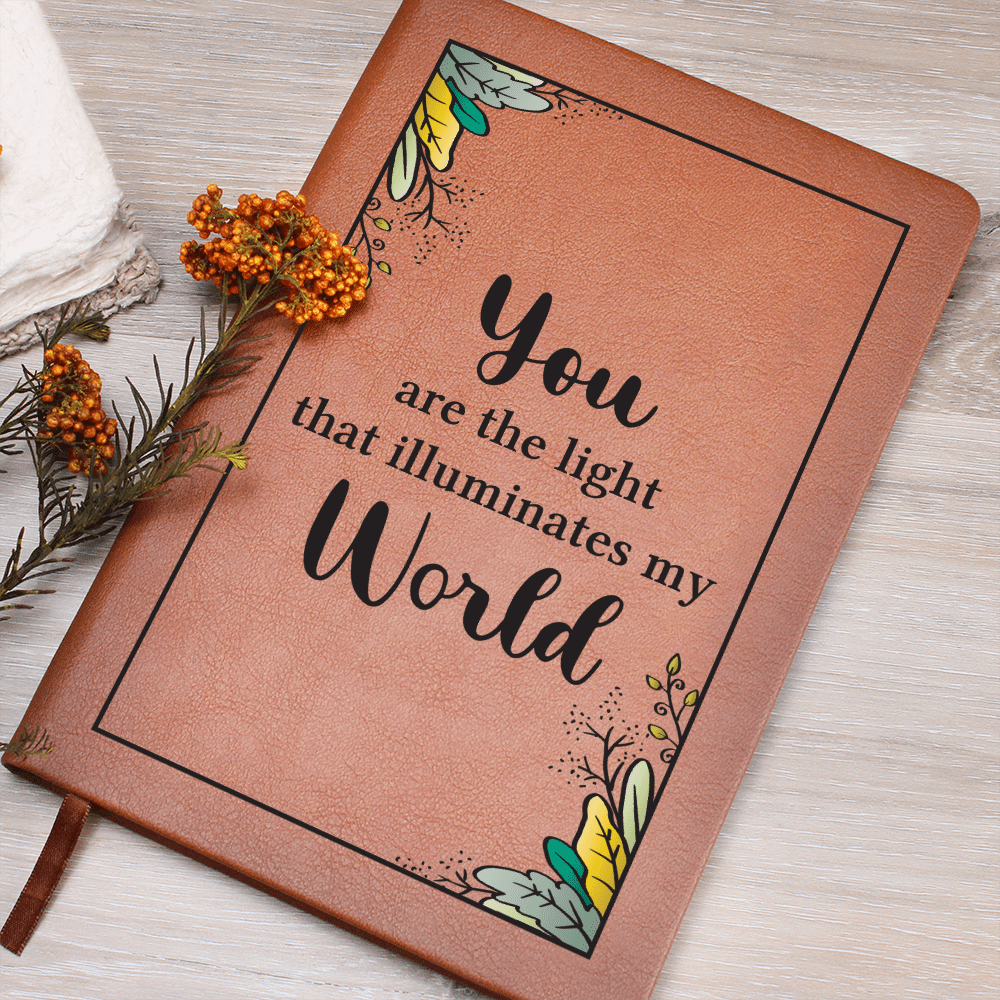 You
are the light
that illuminates my
World